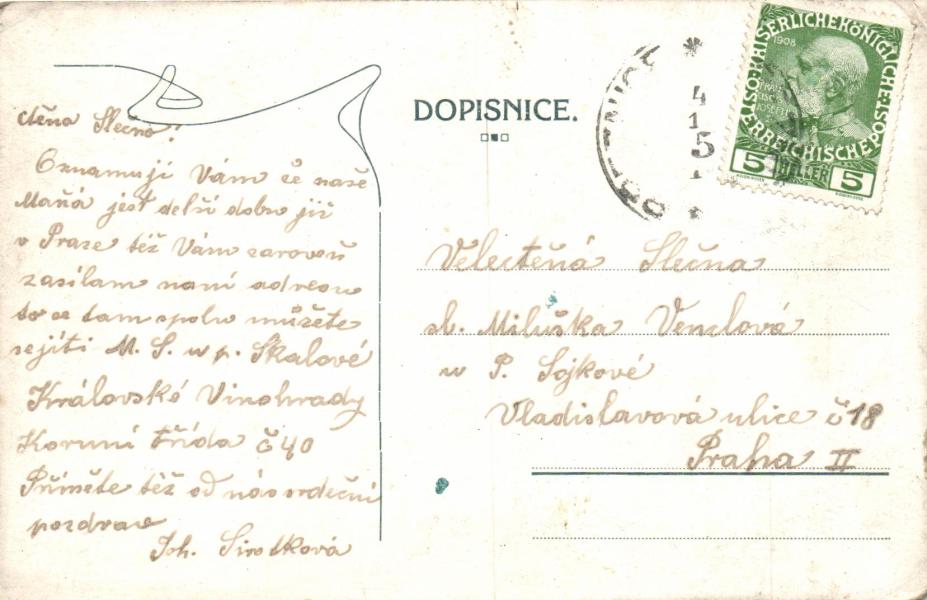 DOPISNICE.
ctěna Slečno!
Oznamuji Vám že naše
Maňa jest delší dobu již
v Praze též Vám zaroveň
zasílam naní adresu
to se tam spolu můžete
sejíti M. S. u p. Skalové
Královské Vinohrady
Koruní třída č 40
Přiměte též od nás srdečni
pozdrav
Joh. Sirotková
1908
KAISERLICHEKÖNIGLICHE POST
ÖSTERREICHISCHE
5 HELLER 5
4
1
5
Velectěná Slečna
sl. Miluška Venclová
u P. Sojkové
Vladislavová ulice č 18
Praha II